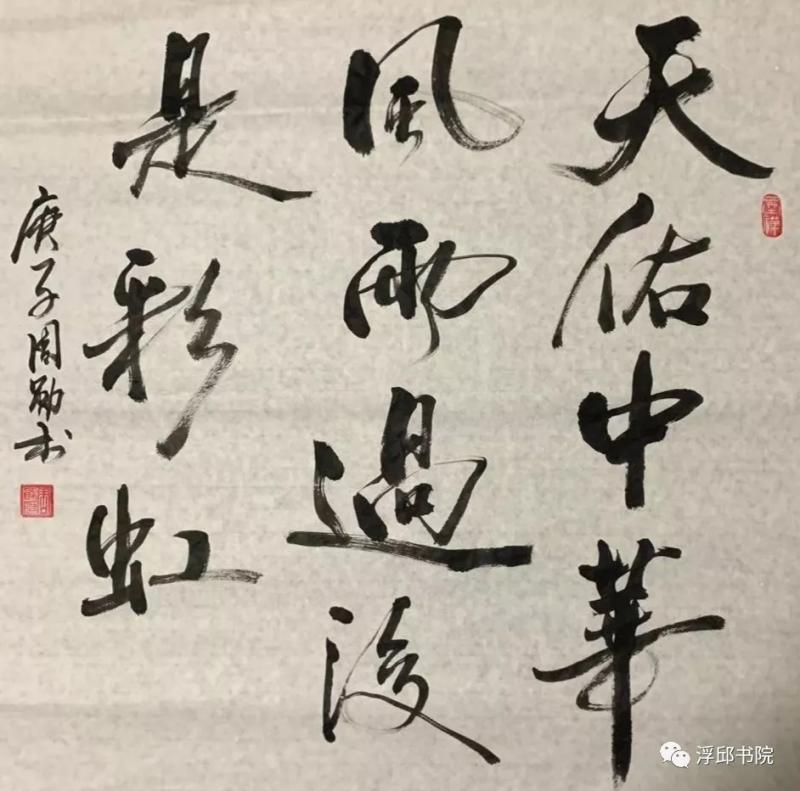 天佑中華
風雨過後
是彩虹
庚子周勋书
浮邱书院